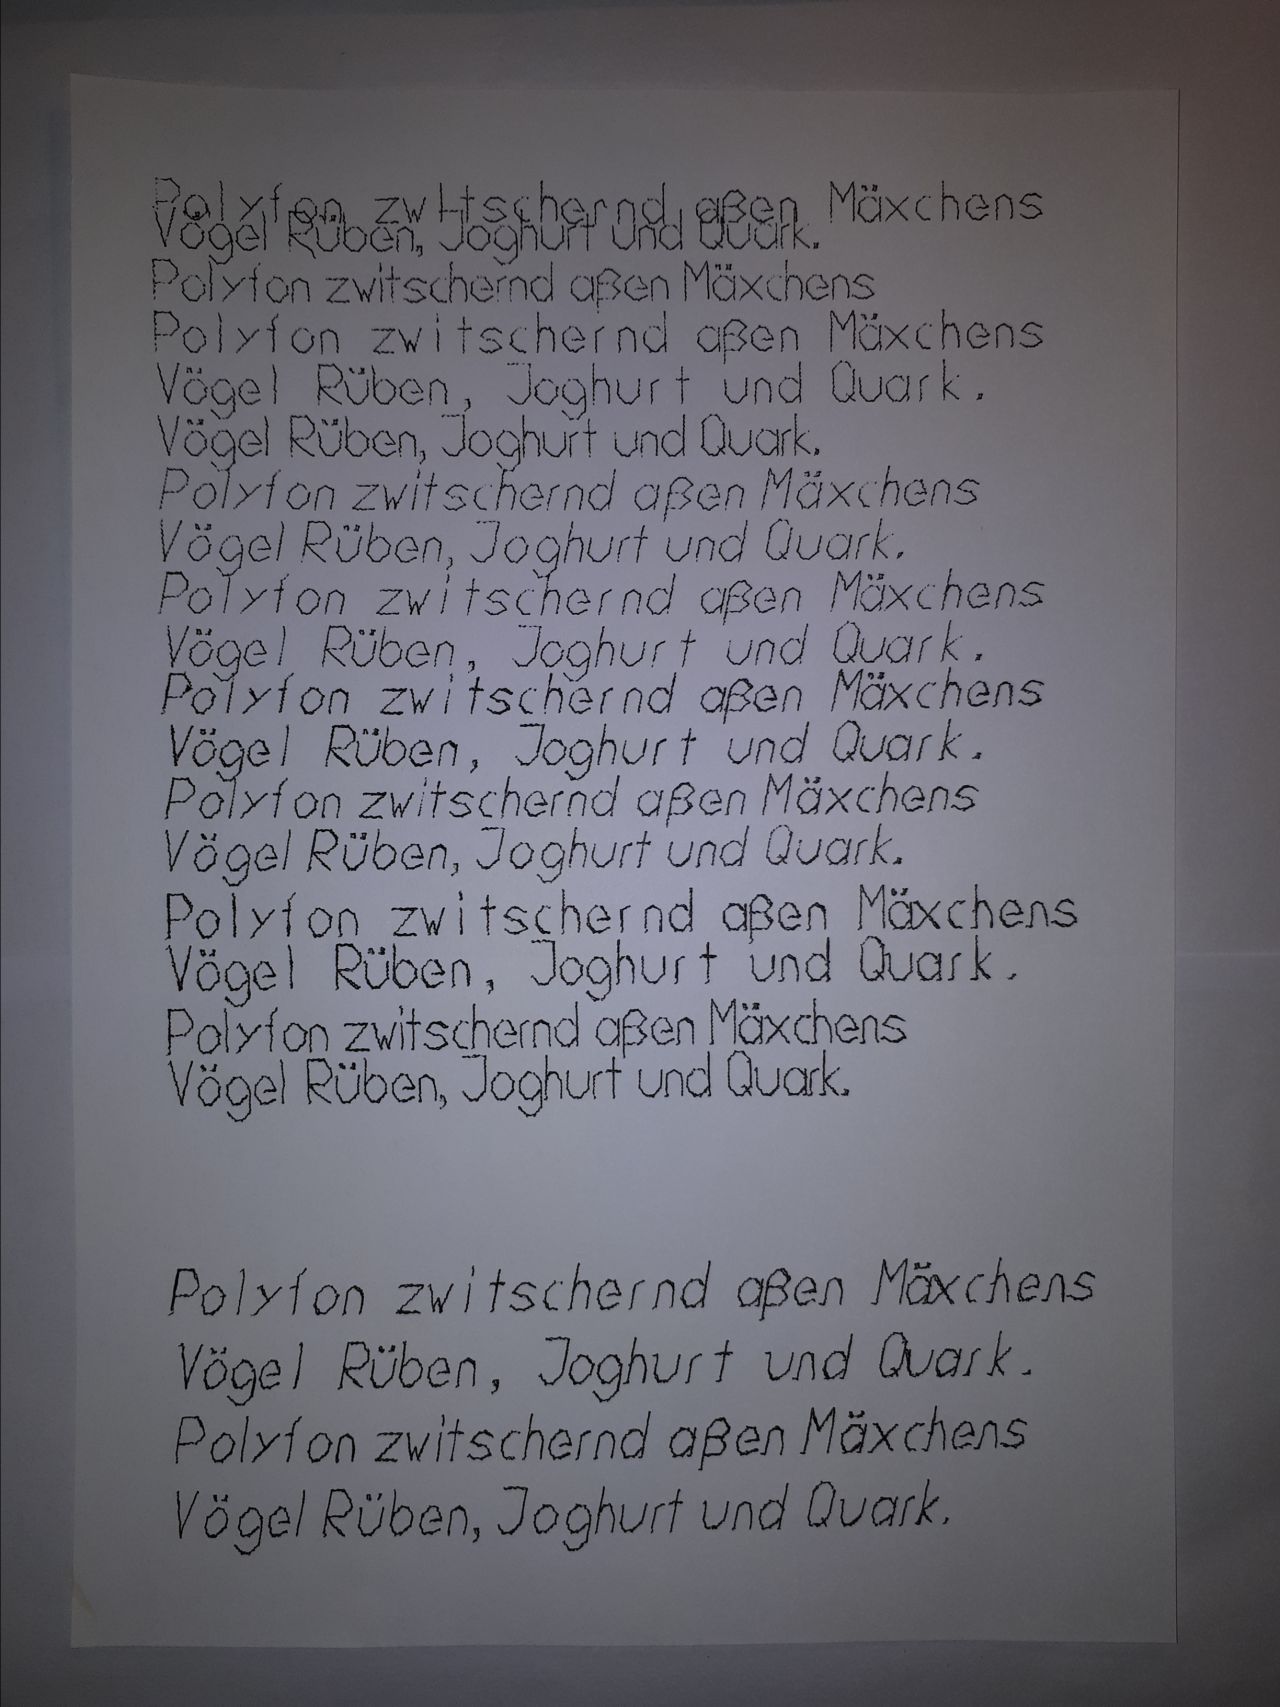 Polyfon zwitschernd aßen Mäxchens
Vögel Rüben, Joghurt und Quark.
Polyfon zwitschernd aßen Mäxchens
Polyfon zwitschernd aßen Mäxchens
Vögel Rüben, Joghurt und Quark.
Vögel Rüben, Joghurt und Quark.
Polyfon zwitschernd aßen Mäxchens
Vögel Rüben, Joghurt und Quark.
Polyfon zwitschernd aßen Mäxchens
Vögel Rüben, Joghurt und Quark.
Polyfon zwitschernd aßen Mäxchens
Vögel Rüben, Joghurt und Quark.
Polyfon zwitschernd aßen Mäxchens
Vögel Rüben, Joghurt und Quark.
Polyfon zwitschernd aßen Mäxchens
Vögel Rüben, Joghurt und Quark.
Polyfon zwitschernd aßen Mäxchens
Vögel Rüben, Joghurt und Quark.
Polyfon zwitschernd aßen Mäxchens
Vögel Rüben, Joghurt und Quark.
Polyfon zwitschernd aßen Mäxchens
Vögel Rüben, Joghurt und Quark.